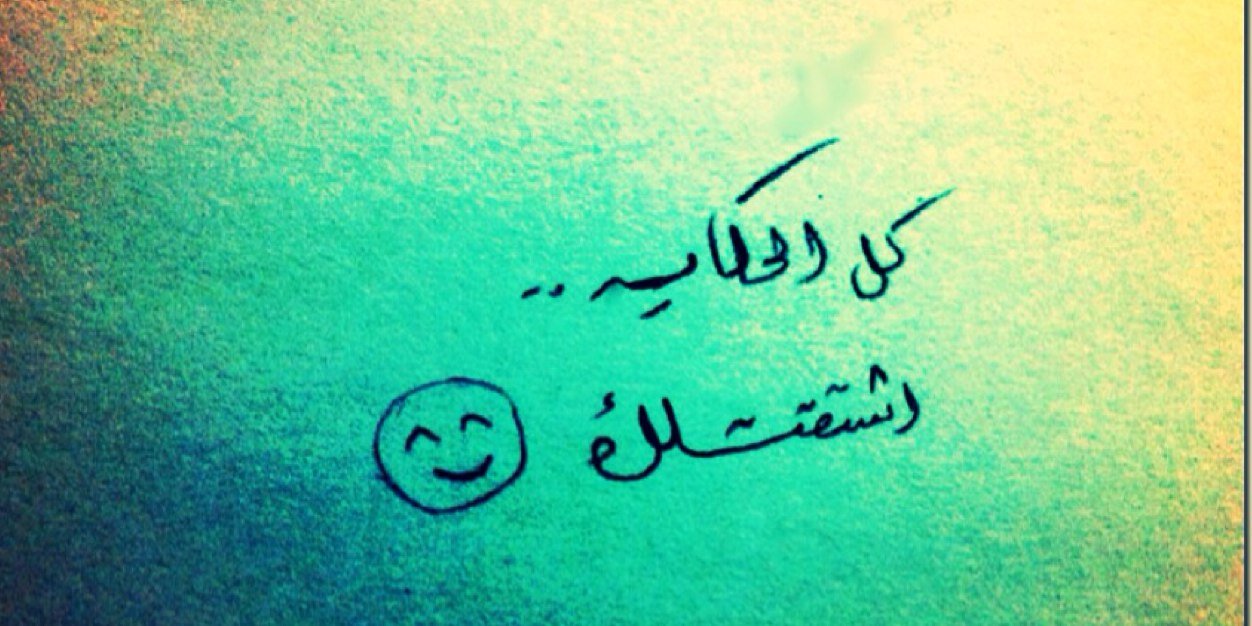 كل الحكايه ..
اشتقتلك